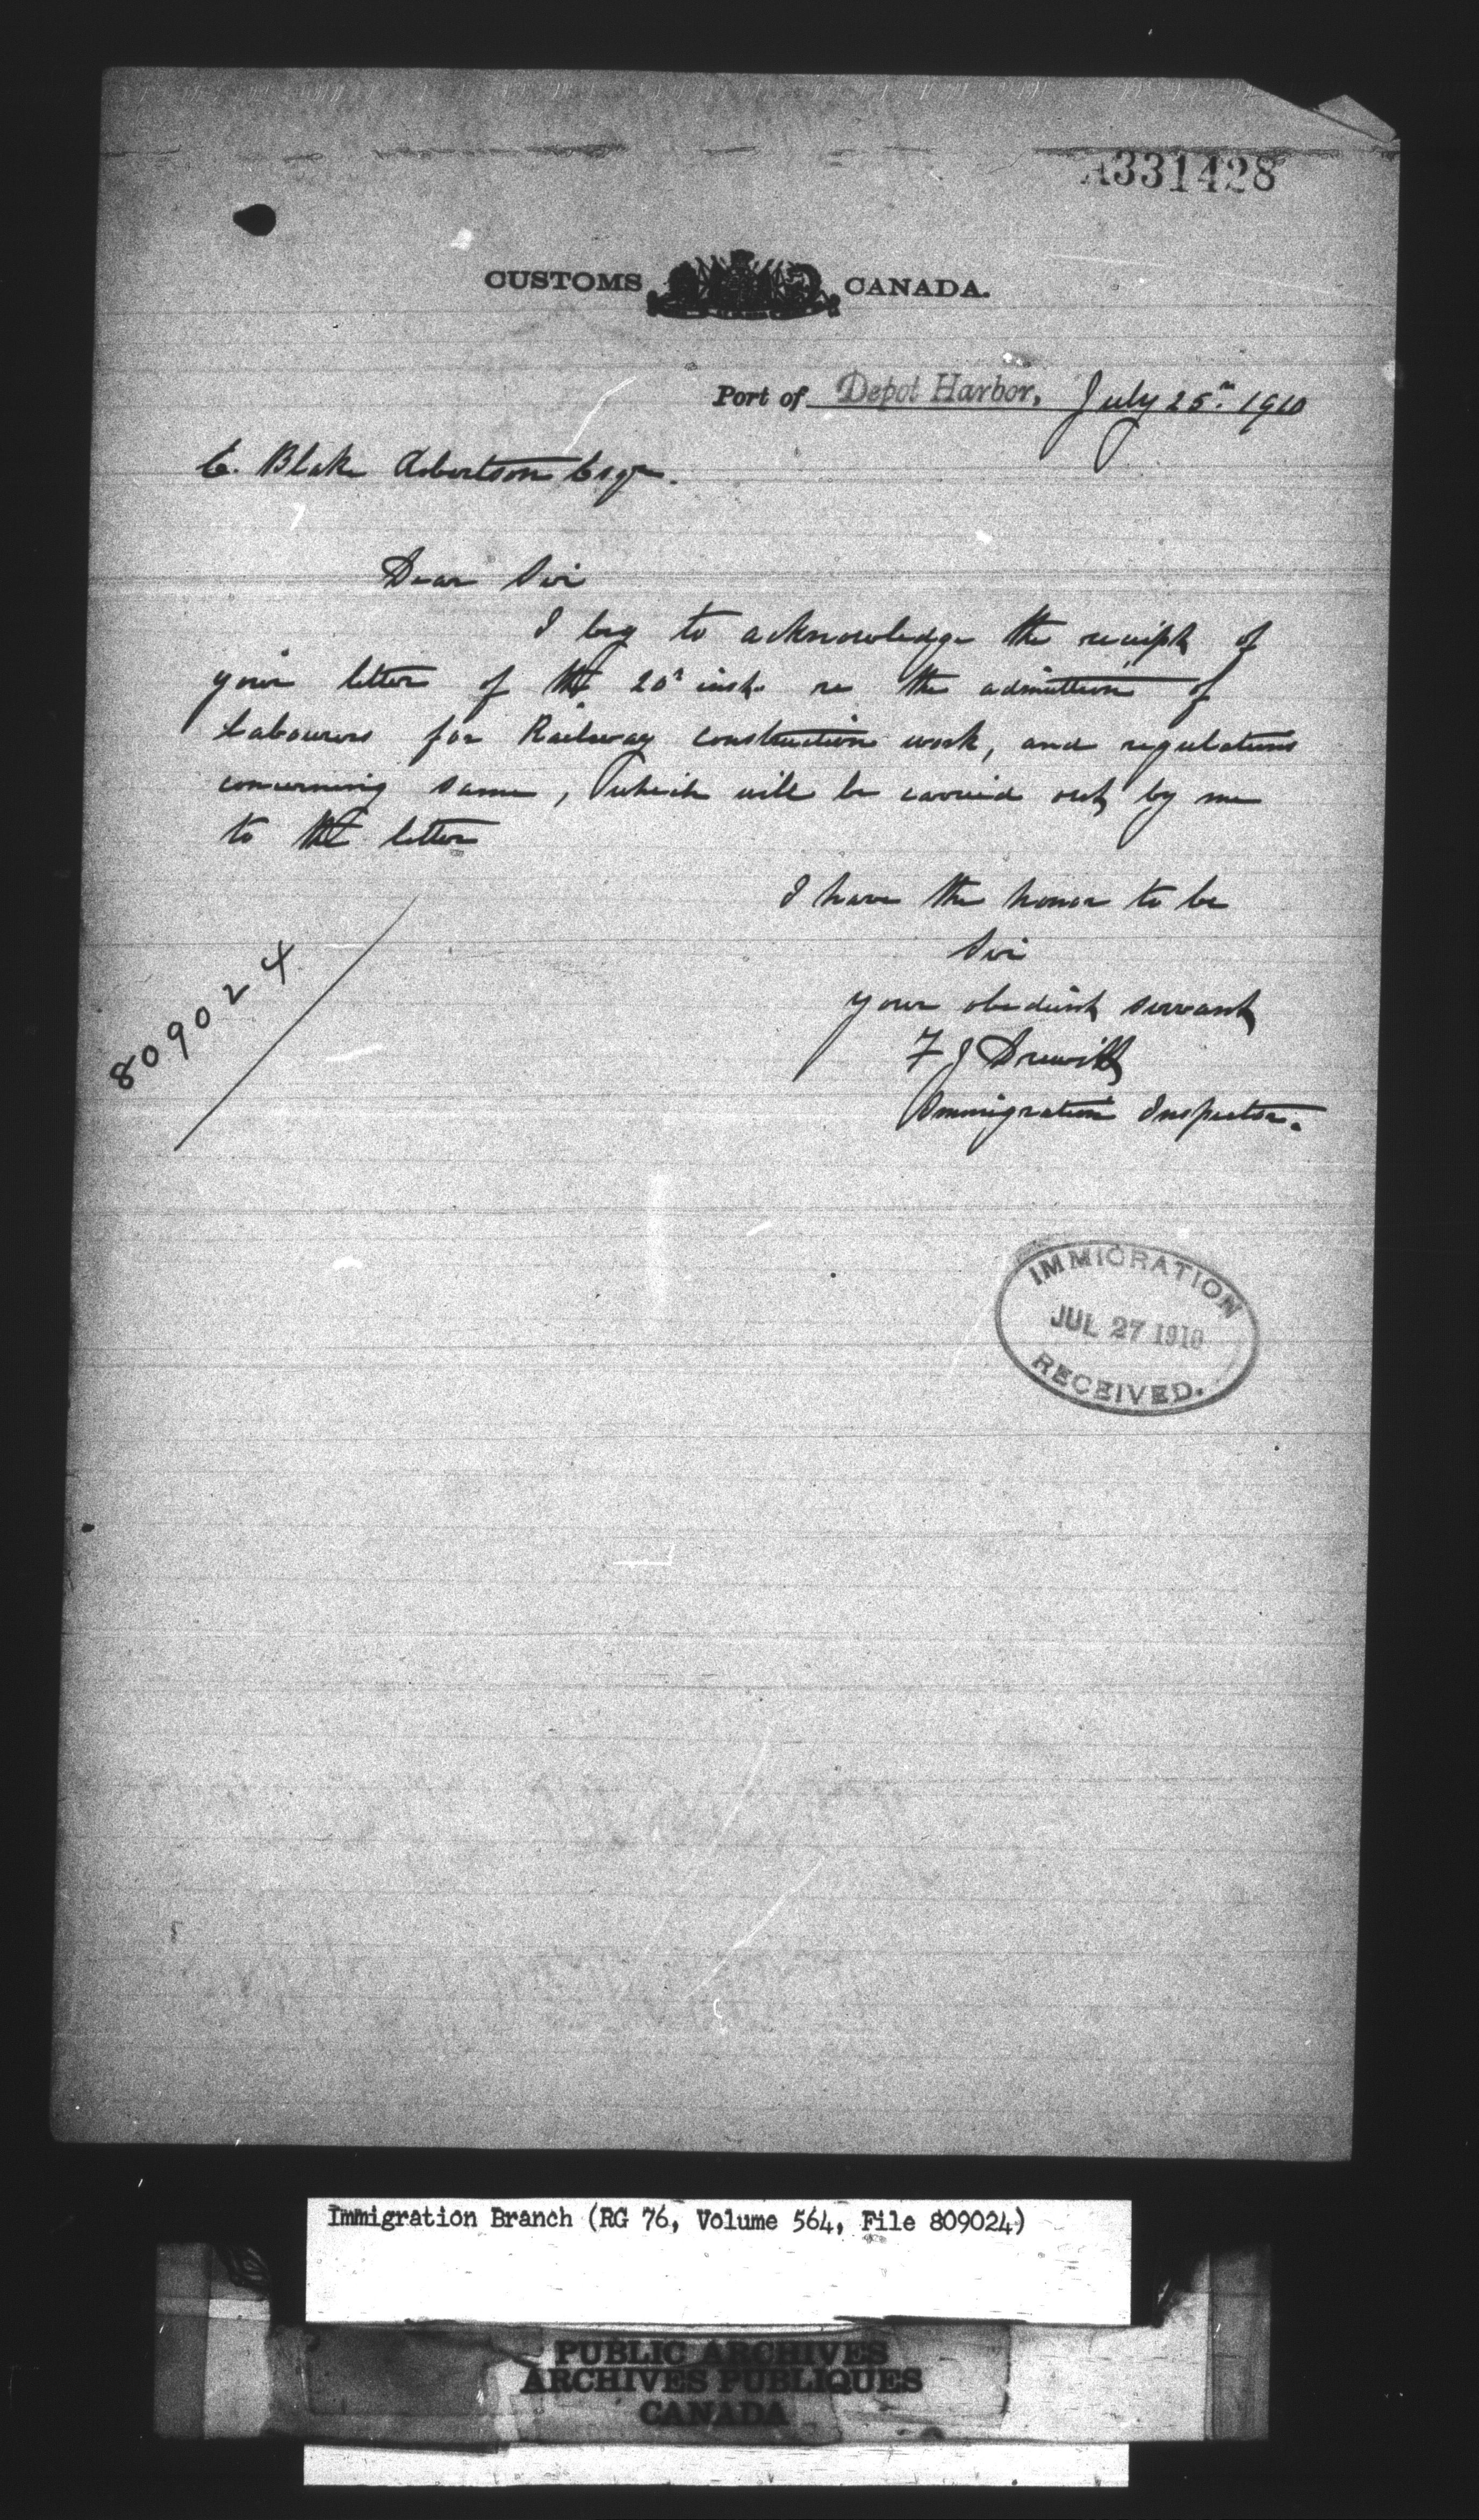 A331428
CUSTOMS CANADA.
Port of Depot Harbor, July 25th 1910
E. Blake Robertson Esqr.
Dear Sir
I beg to acknowledge the receipt of
your letter of the 20th inst. re the admittion of
Labourers for Railway construction work, and regulations
concerning same, which will be carried out by me
to the letter
I have the honor to be
Sir
your obedient servant
F J Drewitt
Immigration Inspector.
809024
IMMIGRATION
JUL 27 1910
RECEIVED.
Immigration Branch (RG 76, Volume 564, File 809024)
PUBLIC ARCHIVES
ARCHIVES PUBLIQUES
CANADA